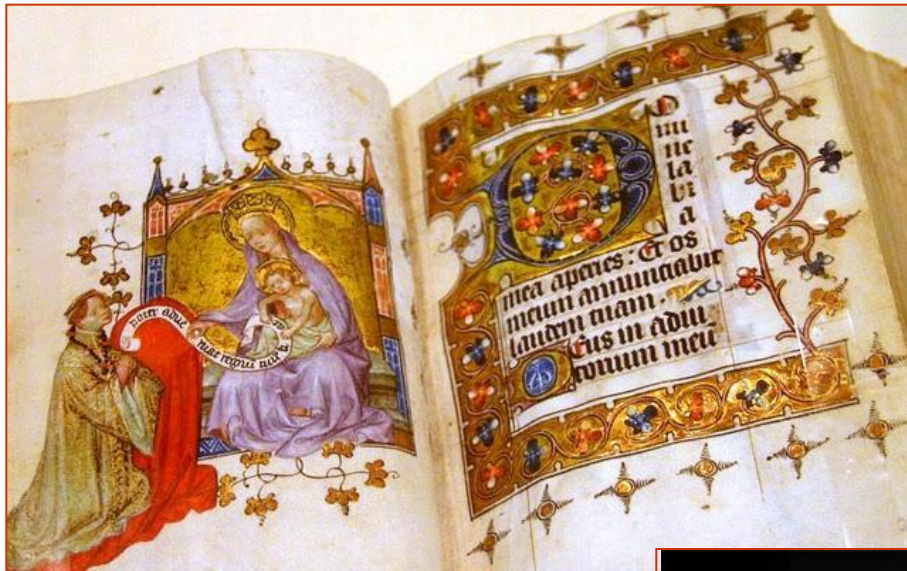 pater adue
niat regnu
D
o
mi
ne
la
bi
a
mea aperies : Et os
meum annunciabit
laudem tuam .
Deus in adiu
torium meū